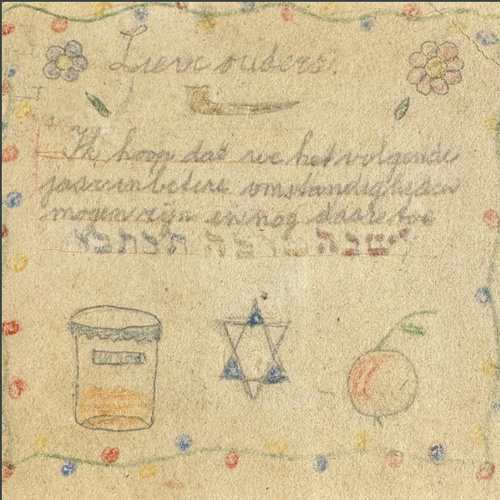 Lieve ouders.
Ik hoop dat we het volgende
jaar in betere omstandigheden
mogen zijn en nog
לשנה טובה תכתבו